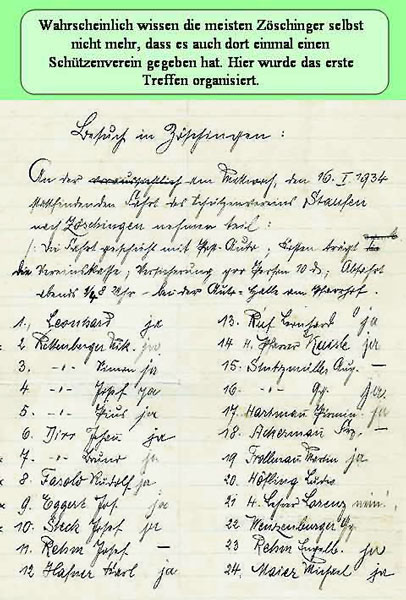 Wahrscheinlich wissen die meisten Zöschinger selbst
nicht mehr, dass es auch dort einmal einen
Schützenverein gegeben hat. Hier wurde das erste
Treffen organisiert.
Besuch in Zöschingen:
An der voraussichtlich am Mittwoch, den 16. I. 1934
stattfindenden Fahrt des Schützenvereins Staufen
nach Zöschingen nehmen teil:
Die Fahrt geschieht mit Post-Auto, Kosten trägt
die Vereinskasse, Versicherung pro Person 10 ₰; Abfahrt
abends ¼8 Uhr bei der Auto-Halle am Pfarrhof.
1. Leonhard ja
2. Rettenberger ja
3. -"- Simon ja
4. -"- Josef ja
5. -"- Pius ja
6. Dirr Johan ja
7. -"- Bruno ja
8. Farold Rudolf ja
9. Eggert Jos. ja
10. Steck Josef ja
11. Rehm Josef –
12 Hafner Karl ja
13. Ruf Leonhard ja
14 H. Pfarrer ja
15. Stutzmüller Aug. –
16. -"- Gg. ja.
17. Hartman Firmin ja
18. Ackerman –
19 Martin ja
20 Höfling
21 H. Lehrer Lorenz nein!
22 Wenzenburger Gg.
23 Rehm Engelb. ja
24. Maier Michael ja